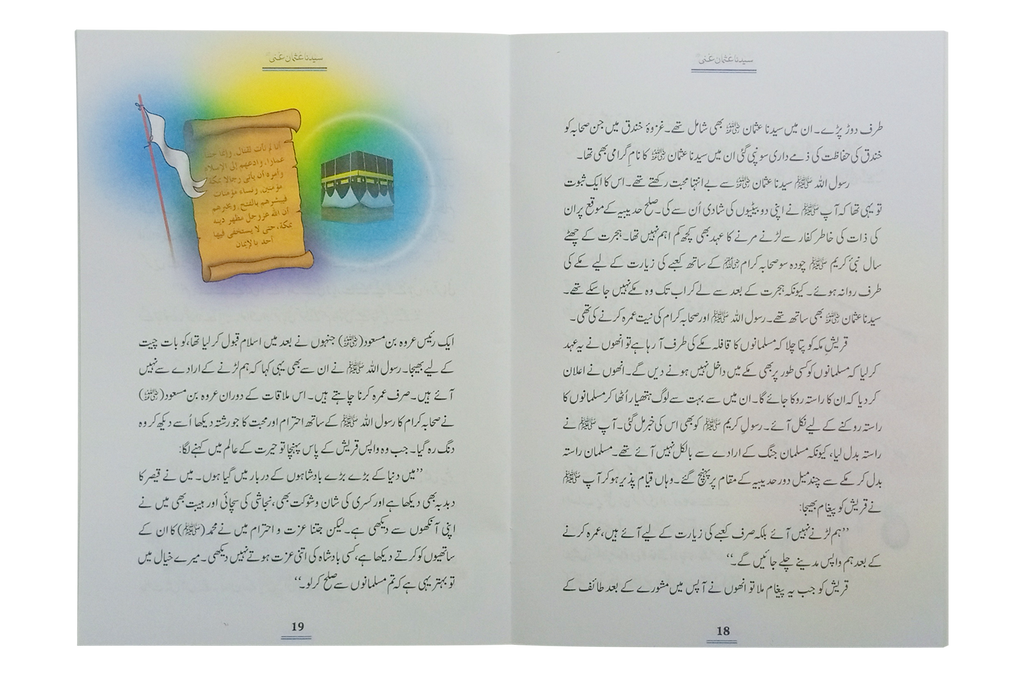 سیدنا عثمان غنیؓ
طرف دوڑ پڑے۔ ان میں سیدنا عثمان رضی اللہ عنہ بھی شامل تھے۔ غزوۂ خندق میں جن صحابہ کو
خندق کی حفاظت کی ذمے داری سونپی گئی ان میں سیدنا عثمان رضی اللہ عنہ کا نام گرامی بھی تھا۔
رسول اللہ ﷺ سیدنا عثمان رضی اللہ عنہ سے بے انتہا محبت رکھتے تھے۔ اس کا ایک ثبوت
تو یہی تھا کہ آپ ﷺ نے اپنی دو بیٹیوں کی شادی اُن سے کی۔ صلح حدیبیہ کے موقع پر ان
کی ذات کی خاطر کفار سے لڑنے مرنے کا عہد بھی کچھ کم اہم نہیں تھا۔ ہجرت کے چھٹے
سال نبیٔ کریم ﷺ چودہ سو صحابہ کرام رضی اللہ عنہم کے ساتھ کعبے کی زیارت کے لیے مکے کی
طرف روانہ ہوئے۔ کیونکہ ہجرت کے بعد سے لے کر اب تک وہ مکے نہیں جا سکے تھے۔
سیدنا عثمان رضی اللہ عنہ بھی ساتھ تھے۔ رسول اللہ ﷺ اور صحابہ کرام کی نیت عمرہ کرنے کی تھی۔
قریشِ مکہ کو پتا چلا کہ مسلمانوں کا قافلہ مکے کی طرف آ رہا ہے تو انھوں نے یہ عہد
کر لیا کہ مسلمانوں کو کسی طور پر بھی مکے میں داخل نہیں ہونے دیں گے۔ انھوں نے اعلان
کر دیا کہ ان کا راستہ روکا جائے گا۔ ان میں سے بہت سے لوگ ہتھیار اُٹھا کر مسلمانوں کا
راستہ روکنے کے لیے نکل آئے۔ رسولِ کریم ﷺ کو بھی اس کی خبر مل گئی۔ آپ ﷺ نے
راستہ بدل لیا، کیونکہ مسلمان جنگ کے ارادے سے بالکل نہیں آئے تھے۔ مسلمان راستہ
بدل کر مکے سے چند میل دور حدیبیہ کے مقام پر پہنچ گئے۔ وہاں قیام پذیر ہو کر آپ ﷺ
نے قریش کو پیغام بھیجا:
”ہم لڑنے نہیں آئے بلکہ صرف کعبے کی زیارت کے لیے آئے ہیں، عمرہ کرنے
کے بعد ہم واپس مدینے چلے جائیں گے۔“
قریش کو جب یہ پیغام ملا تو انھوں نے آپس میں مشورے کے بعد طائف کے
18
سیدنا عثمان غنیؓ
عمارا، وادعهم الى الاسلام
وأمره أن يأتي رجالا بمكة
مؤمنين ونساء مؤمنات
فيبشرهم بالفتح، ويخبرهم
ان الله عزوجل مظهر دينه
بمكة، حتى لا يستخفى فيها
أحد بالإيمان
ایک رئیس عروہ بن مسعود (رضی اللہ عنہ) جنہوں نے بعد میں اسلام قبول کر لیا تھا، کو بات چیت
کے لیے بھیجا۔ رسول اللہ ﷺ نے ان سے بھی یہی کہا کہ ہم لڑنے کے ارادے سے نہیں
آئے ہیں۔ صرف عمرہ کرنا چاہتے ہیں۔ اس ملاقات کے دوران عروہ بن مسعود (رضی اللہ عنہ)
نے صحابہ کرام کا رسول اللہ ﷺ کے ساتھ احترام اور محبت کا جو رشتہ دیکھا اُسے دیکھ کر وہ
دنگ رہ گیا۔ جب وہ واپس قریش کے پاس پہنچا تو حیرت کے عالم میں کہنے لگا:
”میں دنیا کے بڑے بڑے بادشاہوں کے دربار میں گیا ہوں۔ میں نے قیصر کا
دبدبہ بھی دیکھا ہے اور کسریٰ کی شان و شوکت بھی، نجاشی کی سچائی اور ہیبت بھی میں نے
اپنی آنکھوں سے دیکھی ہے۔ لیکن جتنا عزت و احترام میں نے محمد (ﷺ) کا ان کے
ساتھیوں کو کرتے دیکھا ہے، کسی بادشاہ کی اتنی عزت ہوتے نہیں دیکھی۔ میرے خیال میں
تو بہتر یہی ہے کہ تم مسلمانوں سے صلح کر لو۔“
19